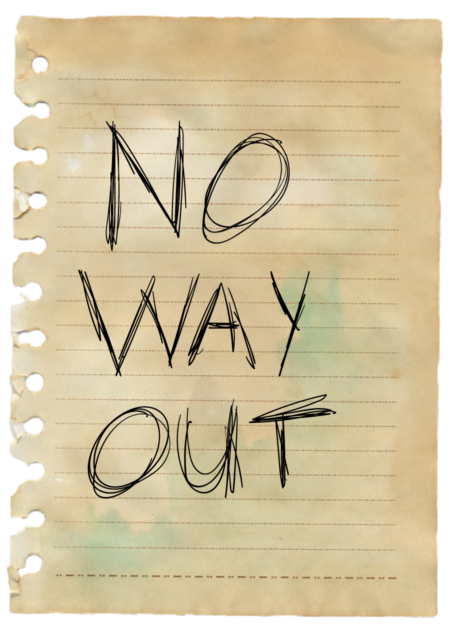 NO
WAY
OUT